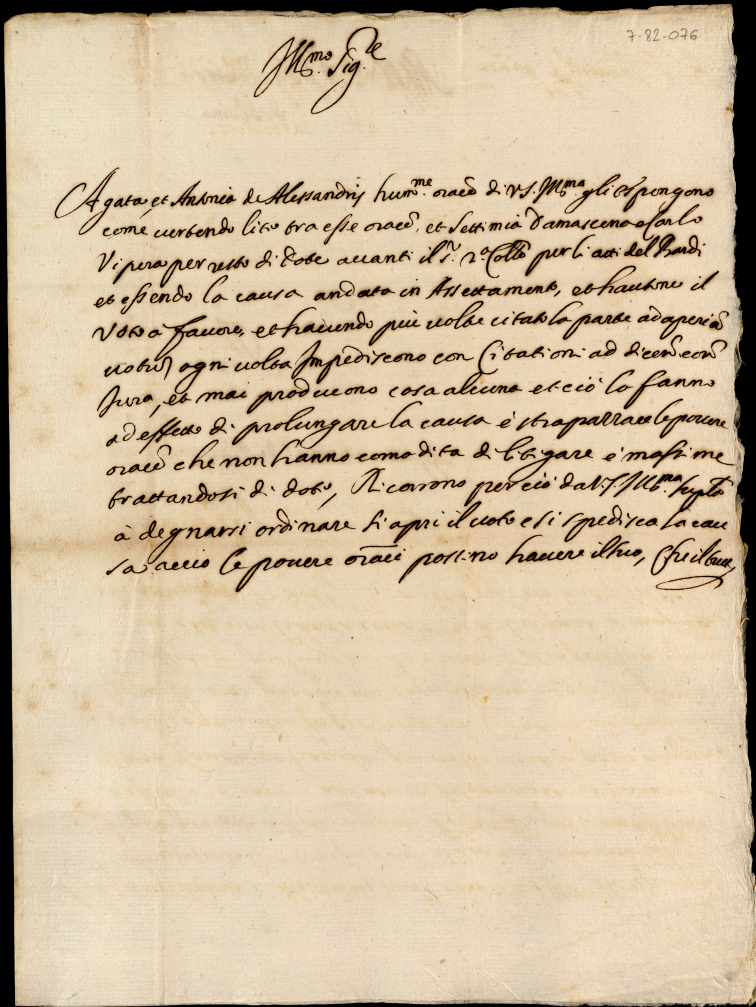 7-82-076
Ill.mo Sig.re
Agata et Antonia de Alessandris hum.me oraci di V.S. Ill.ma gli espongono
come vertendo lite tra esse oraci, et Settimia Damascena e Carlo
Vipera per resto di dote avanti il S.r 2.o Colle per li atti del Bardi
et essendo la causa andata in Assettamento, et hautone il
voto à favore, et havendo più volte citato la parte ad aperiri
votum ogni volta Impediscono con Citationi ad dicen contra
Jura, et mai producono cosa alcuna et ciò lo fanno
ad effetto di prolungare la causa é strapazzare le povere
oraci che non hanno comodità di litigare é massime
trattandosi di dote, Ricorrono perciò da V.S. Ill.ma suplo
à degnarsi ordinare si apri il voto e si spedisca la cau
sa accio le povere oraci possino havere il suo, Che il tutto